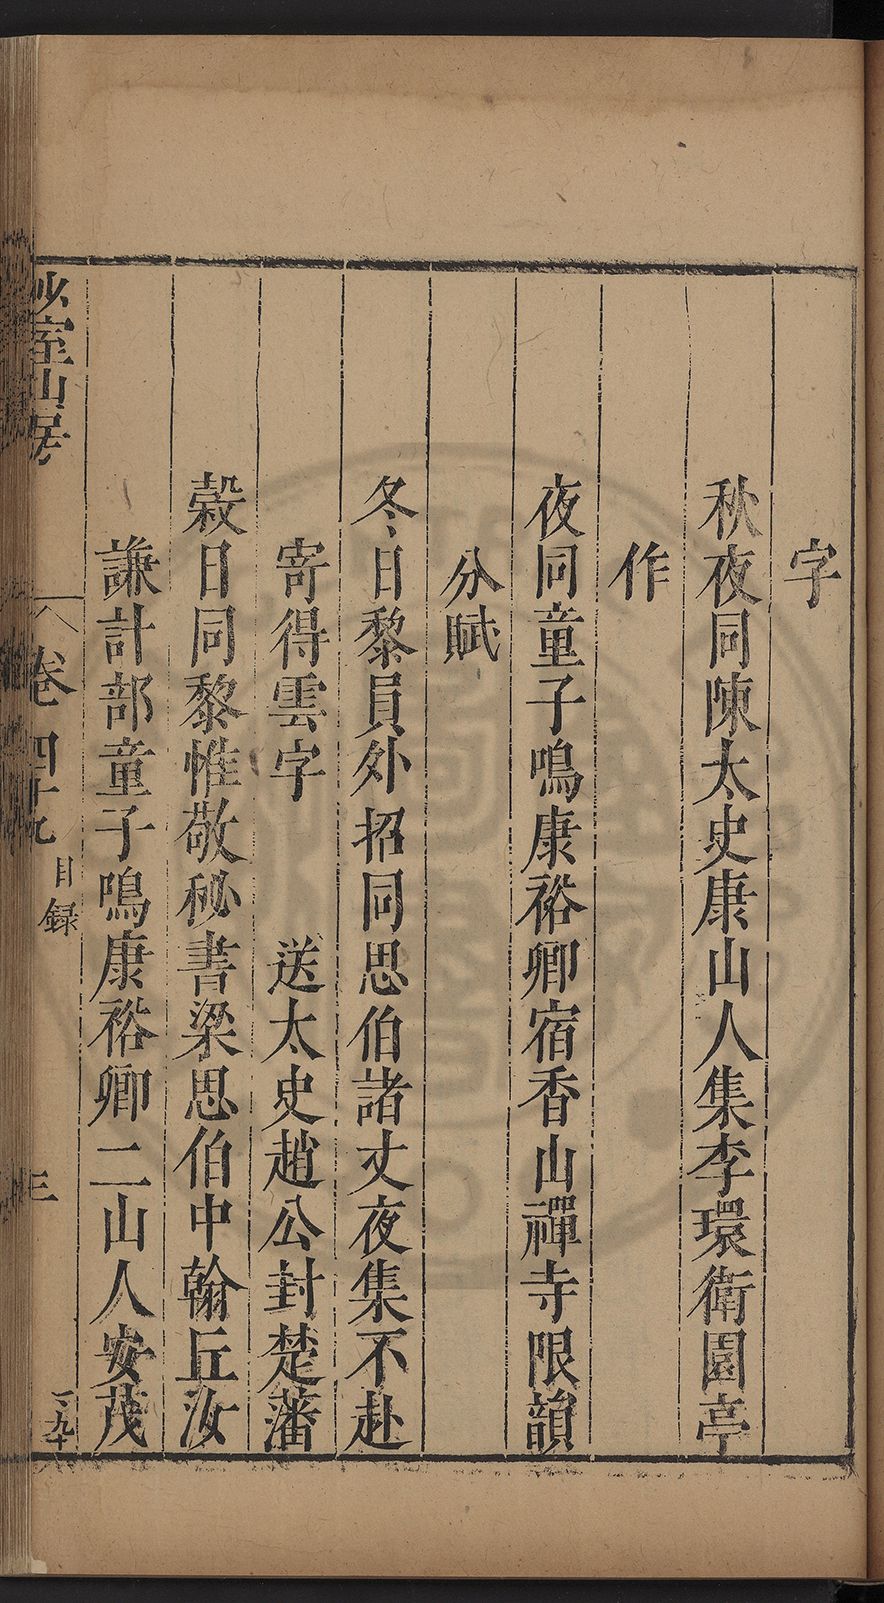 字
秋夜同陳太史康山人集李環衛園亭
作
夜同童子鳴康裕卿宿香山禪寺限韻
分賦
冬日黎員外招同思伯諸丈夜集不赴
寄得雲字　送太史趙公封楚藩
穀日同黎惟敬秘書梁思伯中翰丘汝
謙計部童子鳴康裕卿二山人安茂
少室山房　卷四十九　目録　三